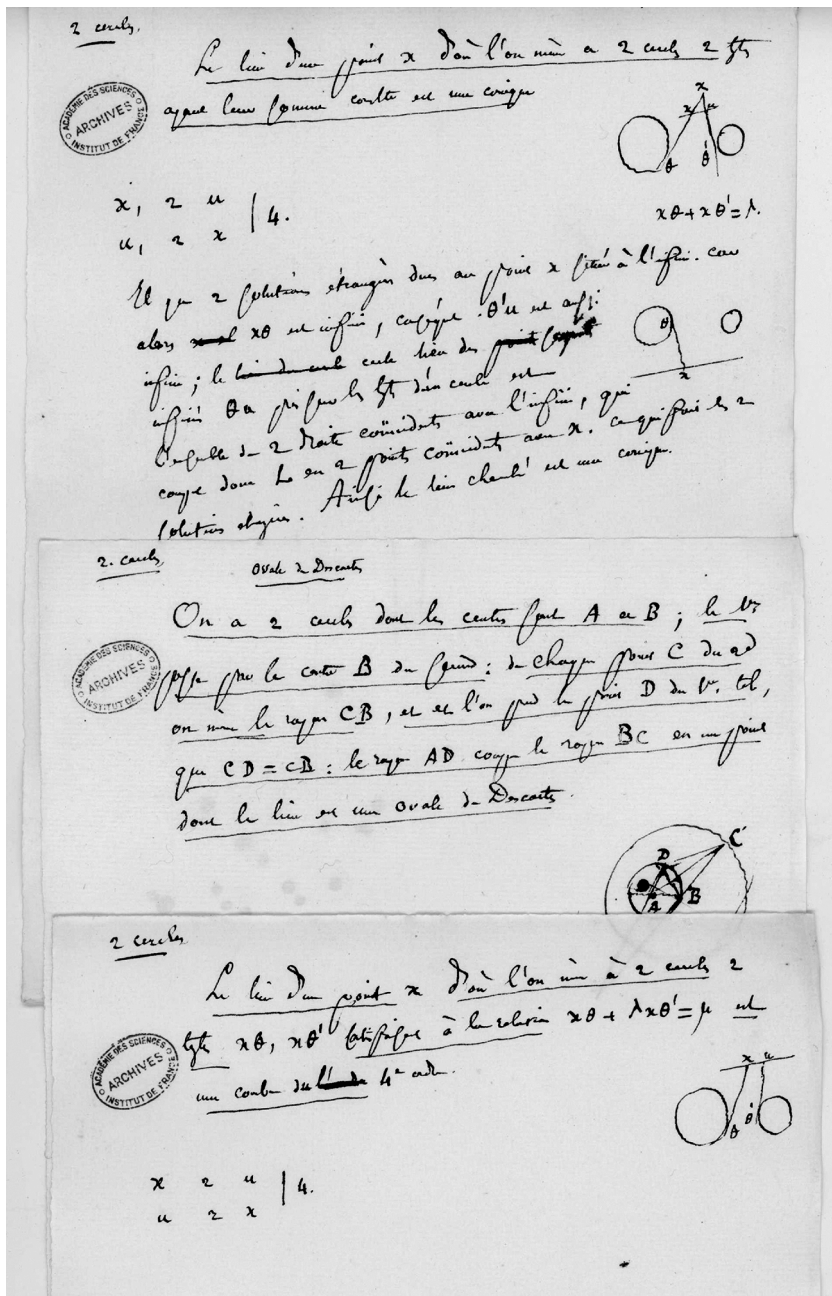 2 cercles.
Le lieu d'un point x d'où l'on mène a 2 cercles 2 tgtes
ayant leur somme conste est une conique
ACADÉMIE DES SCIENCES
ARCHIVES
INSTITUT DE FRANCE
x
x u
θ θ'
x, 2 u | 4.
u, 2 x
xθ+xθ'=λ.
Il y a 2 solutions étrangères dues au point x situé à l'infini. car
alors xθ est infini, θ'u est aussi
infini; le lieu des
infinis
2 droites coïncidents avec l'infini, qui
coupe donc L en 2 points coïncidents avec x. ce qui fait les 2
solutions étrangères. Ainsi le lieu cherché est une conique.
θ
x
2. cercles
Ovale de Descartes
On a 2 cercles dont les centres sont A et B; le 1er
passe par le centre B du second: de chaque point C du 2d
on mène le rayon CB, et l'on prend le point D du 1er. tel,
que CD = CB: le rayon AD coupe le rayon BC en un point
dont le lieu est un ovale de Descartes.
ACADÉMIE DES SCIENCES
ARCHIVES
INSTITUT DE FRANCE
C
D
A
B
2 cercles
Le lieu d'un point x d'où l'on mène à 2 cercles 2
tgtes xθ, xθ' satisfaisant à la relation xθ + λxθ'=μ est
une courbe du 4e ordre.
ACADÉMIE DES SCIENCES
ARCHIVES
INSTITUT DE FRANCE
x u
θ θ'
x 2 u | 4.
u 2 x